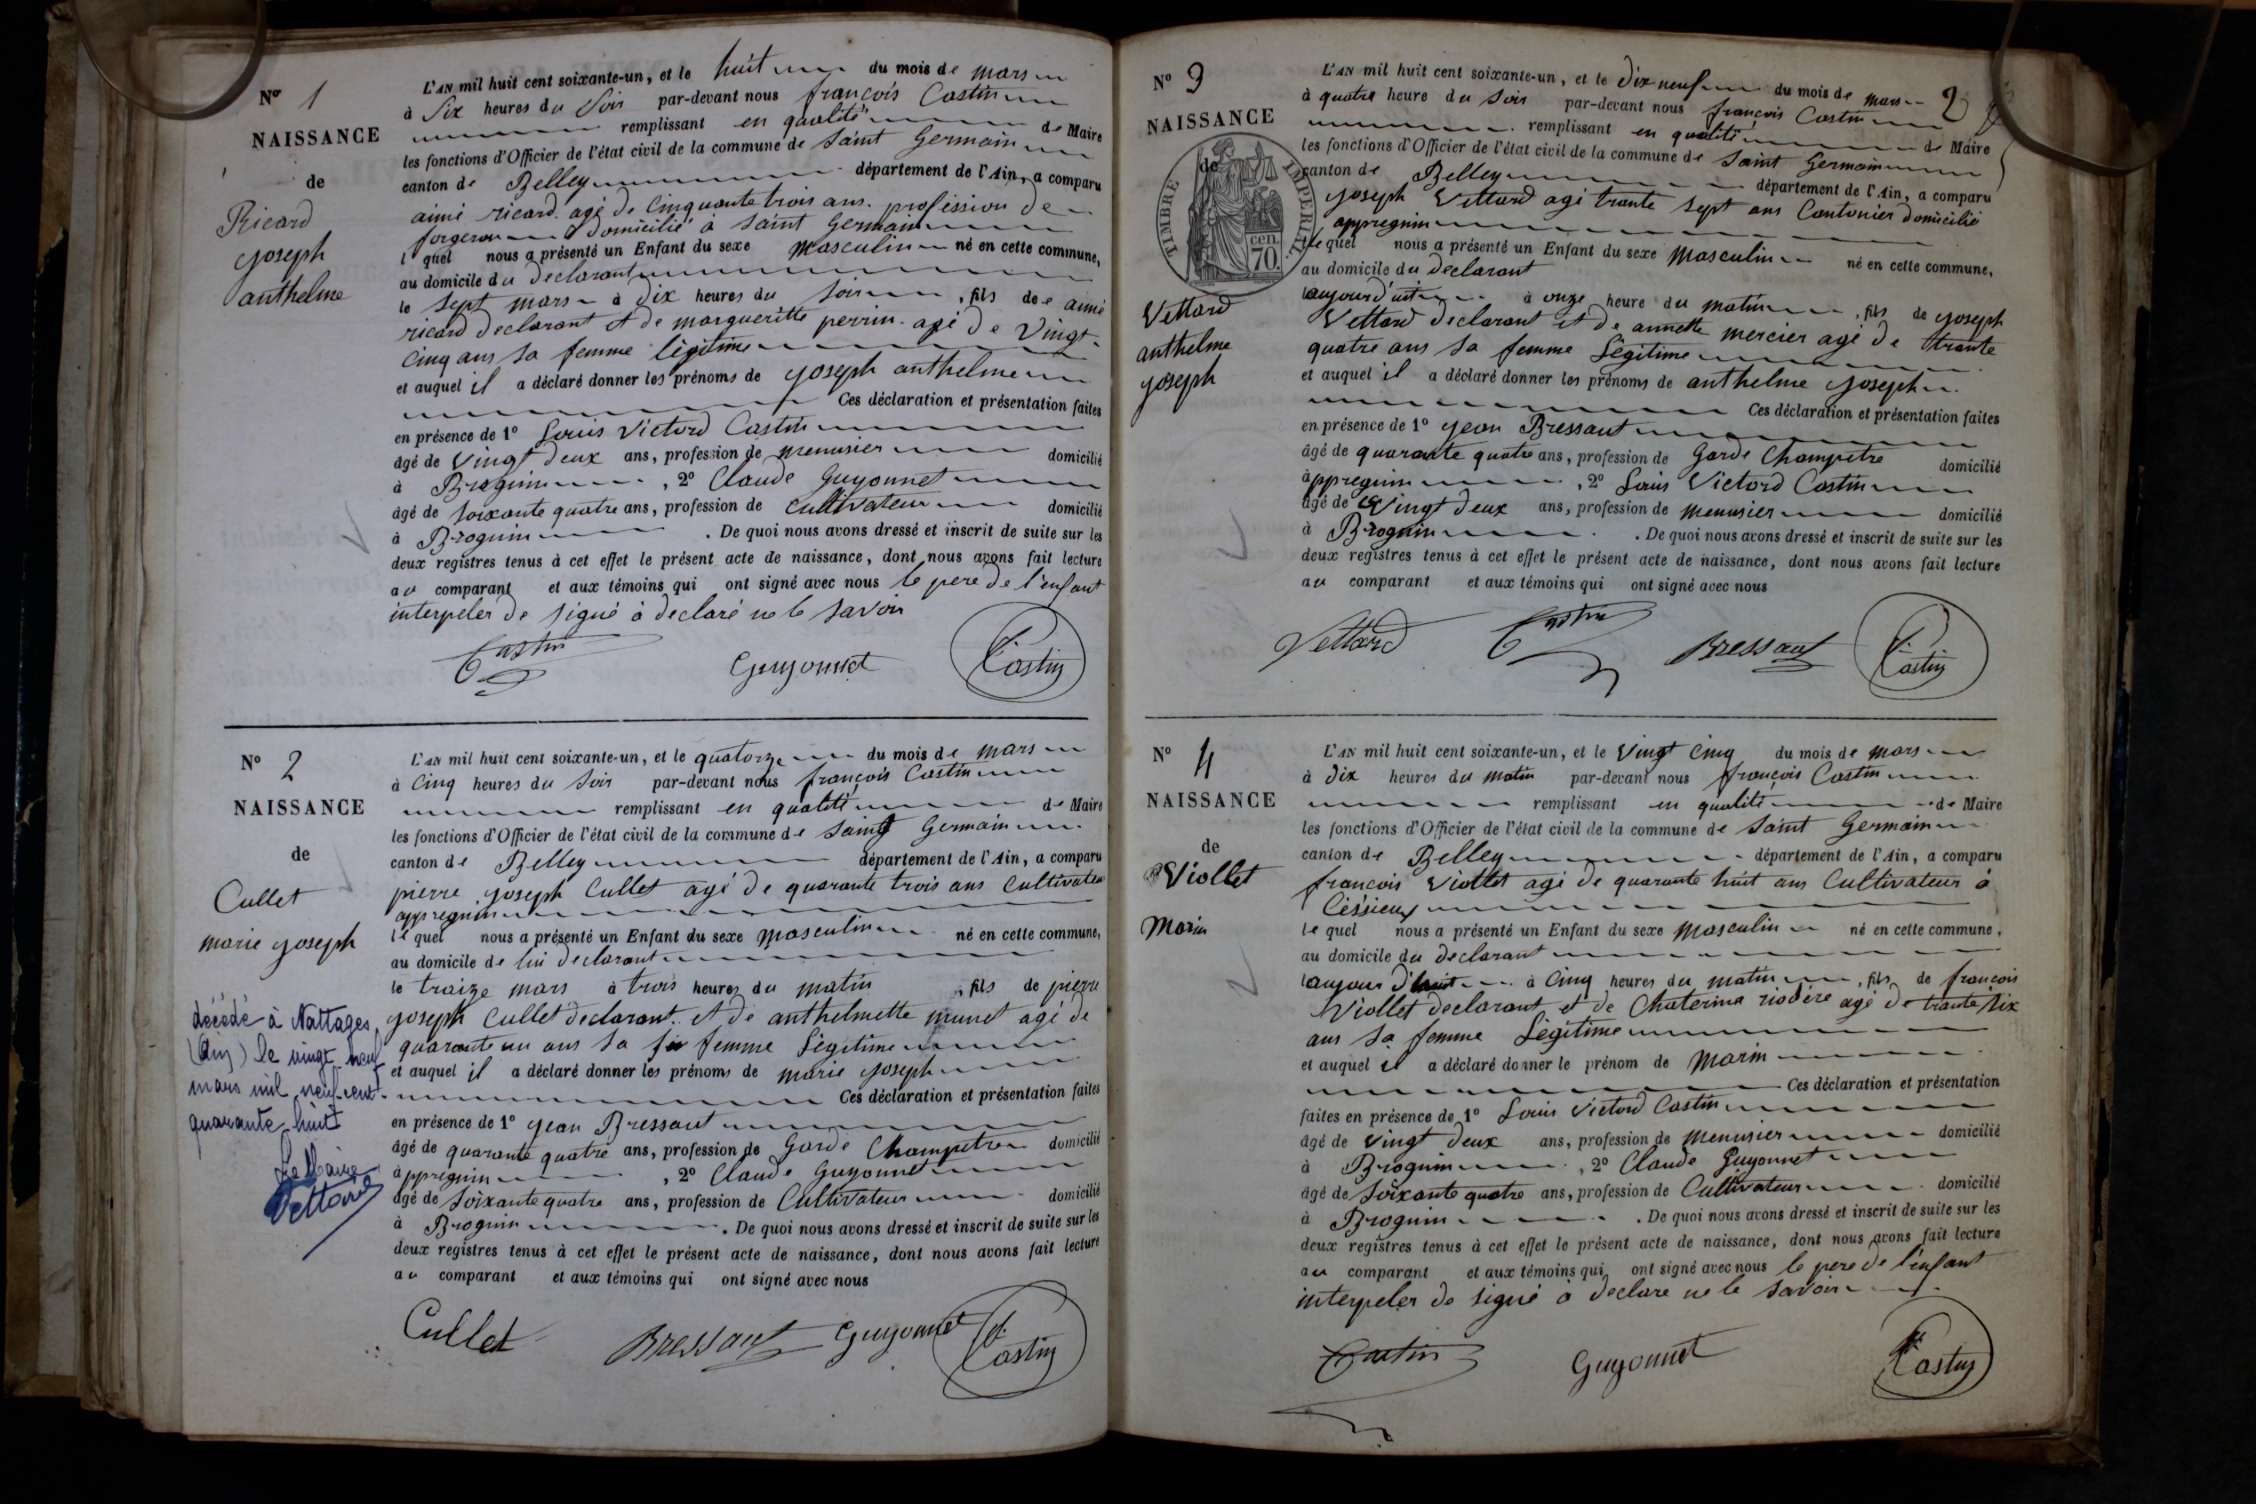 N° 1
NAISSANCE
de
Ricard
joseph
anthelme
L'AN mil huit cent soixante-un, et le huit du mois de mars
à Six heures du Soir par-devant nous françois Castin
remplissant en qualité de Maire
les fonctions d'Officier de l'état civil de la commune de Saint Germain
canton de Belley département de l'Ain, a comparu
aimé ricard agé de Cinquante trois ans profession de
forgeron domicilié à Saint Germain
lequel nous a présenté un Enfant du sexe Masculin né en cette commune,
au domicile du Declarant
le sept mars à Dix heures du Soir, fils de aimé
ricard declarant et de margueritte perrin agé de Vingt
Cinq ans sa femme légitime
et auquel il a déclaré donner les prénoms de joseph anthelme
Ces déclaration et présentation faites
en présence de 1° Louis Victord Castin
âgé de Vingt deux ans, profession de menusier domicilié
à Brognin, 2° Claude Guyonnet
âgé de soixante quatre ans, profession de Cultivateur domicilié
à Brognin. De quoi nous avons dressé et inscrit de suite sur les
deux registres tenus à cet effet le présent acte de naissance, dont nous avons fait lecture
au comparant et aux témoins qui ont signé avec nous le pere de l'enfant
interpeler de signé à declaré ne le savoir
Castin Guyonnet Castin
N° 2
NAISSANCE
de
Cullet
marie joseph
décédé à Nattages
(Ain) le vingt neuf
mars mil neuf-cent-
quarante-huit
Le Maire
Vettard
L'AN mil huit cent soixante-un, et le quatorze du mois de mars
à Cinq heures du Soir par-devant nous françois Castin
remplissant en qualité de Maire
les fonctions d'Officier de l'état civil de la commune de Saint Germain
canton de Belley département de l'Ain, a comparu
pierre joseph Cullet agé de quarante trois ans Cultivateur
appregnin
lequel nous a présenté un Enfant du sexe Masculin né en cette commune,
au domicile de lui declarant
le traize mars à trois heures du matin, fils de pierre
joseph Cullet declarant et de anthelmette munet agé de
quarante un ans sa femme Légitime
et auquel il a déclaré donner les prénoms de marie joseph
Ces déclaration et présentation faites
en présence de 1° jean Bressaut
âgé de quarante quatre ans, profession de Garde Champetre domicilié
àppregnin, 2° Claude Guyonnet
âgé de Soixante quatre ans, profession de Cultivateur domicilié
à Brognin. De quoi nous avons dressé et inscrit de suite sur les
deux registres tenus à cet effet le présent acte de naissance, dont nous avons fait lecture
au comparant et aux témoins qui ont signé avec nous
Cullet Bressaut Guyonnet Castin
2
N° 3
NAISSANCE
de
TIMBRE IMPERIAL
70 cen.
Vettard
anthelme
joseph
L'AN mil huit cent soixante-un, et le Dix neuf du mois de mars
à quatre heure du Soir par-devant nous françois Castin
remplissant en qualité de Maire
les fonctions d'Officier de l'état civil de la commune de Saint Germain
canton de Belley département de l'Ain, a comparu
joseph Vettard agé trante sept ans Cantonier domicilié
appregnin
lequel nous a présenté un Enfant du sexe Masculin né en cette commune,
au domicile du Declarant
laujourd'uit à onze heure du matin, fils de joseph
Vettard declarant et de annette mercier agé de trante
quatre ans sa femme Légitime
et auquel il a déclaré donner les prénoms de anthelme joseph
Ces déclaration et présentation faites
en présence de 1° jean Bressaut
âgé de quarante quatre ans, profession de Garde Champetre domicilié
àppregnin, 2° Louis Victord Castin
âgé de Vingt deux ans, profession de menusier domicilié
à Brognin. De quoi nous avons dressé et inscrit de suite sur les
deux registres tenus à cet effet le présent acte de naissance, dont nous avons fait lecture
au comparant et aux témoins qui ont signé avec nous
Vettard Castin Bressaut Castin
N° 4
NAISSANCE
de
Viollet
Marin
L'AN mil huit cent soixante-un, et le Vingt Cinq du mois de mars
à Dix heures du matin par-devant nous françois Castin
remplissant en qualité de Maire
les fonctions d'Officier de l'état civil de la commune de Saint Germain
canton de Belley département de l'Ain, a comparu
francois Viollet agé de quarante huit ans Cultivateur à
Cessieux
lequel nous a présenté un Enfant du sexe Masculin né en cette commune,
au domicile du declarant
laujour d'huit à Cinq heures du matin, fils de francois
Viollet declarant et de Chaterina rivoère agé de trante six
ans sa femme Légitime
et auquel il a déclaré donner le prénom de Marin
Ces déclaration et présentation
faites en présence de 1° Louis Victord Castin
âgé de Vingt deux ans, profession de Menusier domicilié
à Brognin, 2° Claude Guyonnet
âgé de Soixante quatre ans, profession de Cultivateur domicilié
à Brognin. De quoi nous avons dressé et inscrit de suite sur les
deux registres tenus à cet effet le présent acte de naissance, dont nous avons fait lecture
au comparant et aux témoins qui ont signé avec nous le pere de l'enfant
interpeler de signé à declare ne le savoir
Castin Guyonnet Castin